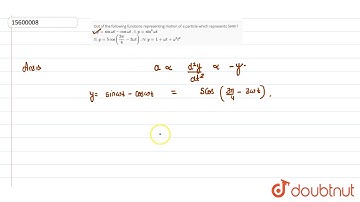 15600008
Out of the following functions representing motion of a particle which represents SHM I
= sinωt − cosωt, II. y = sin³ωt
III. y = 5cos(3π/4 − 3ωt), IV. y = 1 + ωt + ω²t²
Ans:s a ∝ d²y/dt² ∝ -y.
y = sinωt − cosωt = 5cos(3π/4 − 3ωt).
doubtnut